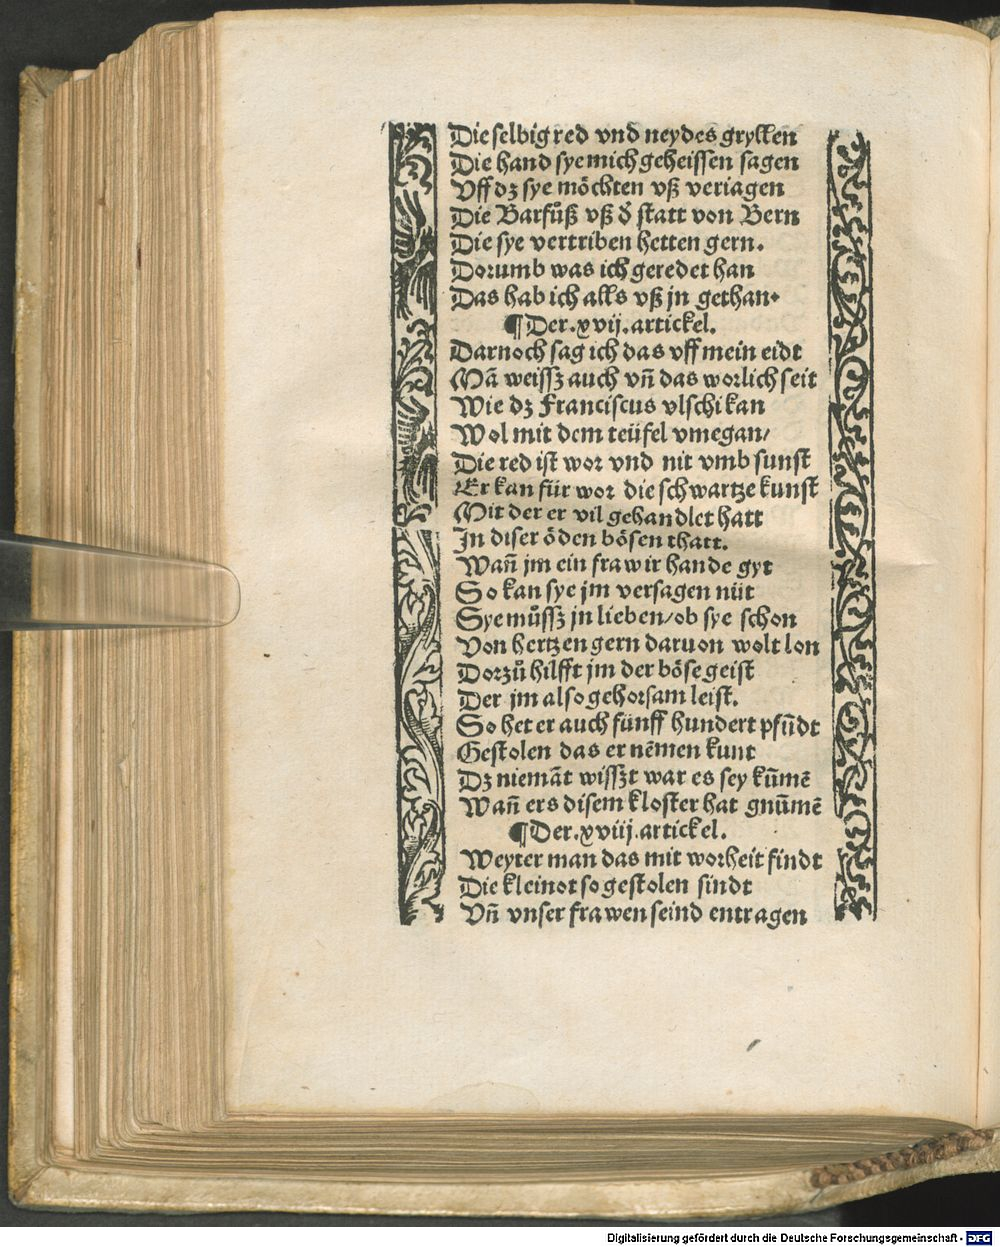 Die selbig red vnd neydes gryllen
Die hand sye mich geheissen sagen
Vff dz sye möchten vß veriagen
Die Barfuͦß vß d̕ statt von Bern
Die sye vertriben hetten gern.
Dorumb was ich geredet han
Das hab ich alls vß jn gethan.
¶ Der .xvij. artickel.
Darnoch sag ich das vff mein eidt
Mā weissz auch vn̄ das worlich seit
Wie dz Franciscus vlschi kan
Wol mit dem teüfel vmegan/
Die red ist wor vnd nit vmb sunst
Er kan für wor die schwartze kunst
Mit der er vil gehandlet hatt
In diser öden bösen thatt.
Wan̄ jm ein fraw ir hande gyt
So kan sye jm versagen nüt
Sye muͦssz jn lieben/ ob sye schon
Von hertzen gern daruon wolt lon
Dorzuͦ hilfft jm der böse geist
Der jm also gehorsam leist.
So het er auch fünff hundert pfūdt
Gestolen das er nēmen kunt
Dz niemāt wisszt war es sey kūmē
Wan̄ ers disem kloster hat gnūmē
¶ Der .xviij. artickel.
Weyter man das mit worheit findt
Die kleinot so gestolen sindt
Vn̄ vnser frawen seind entragen
Digitalisierung gefördert durch die Deutsche Forschungsgemeinschaft - DFG